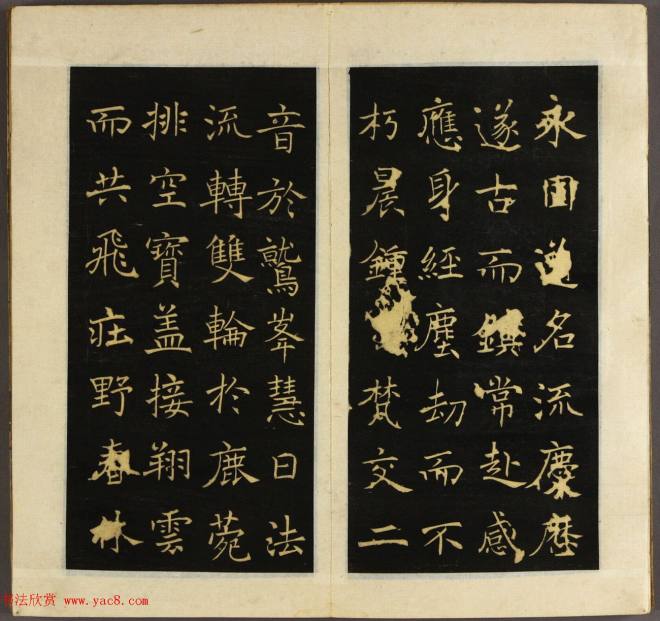 永固道名流慶歷
遂古而鎮常赴感
應身經塵劫而不
朽晨鍾梵交二
音於鷲峯慧日法
流轉雙輪於鹿菀
排空寶盖接翔雲
而共飛庄野春林
书法欣赏 www.yac8.com